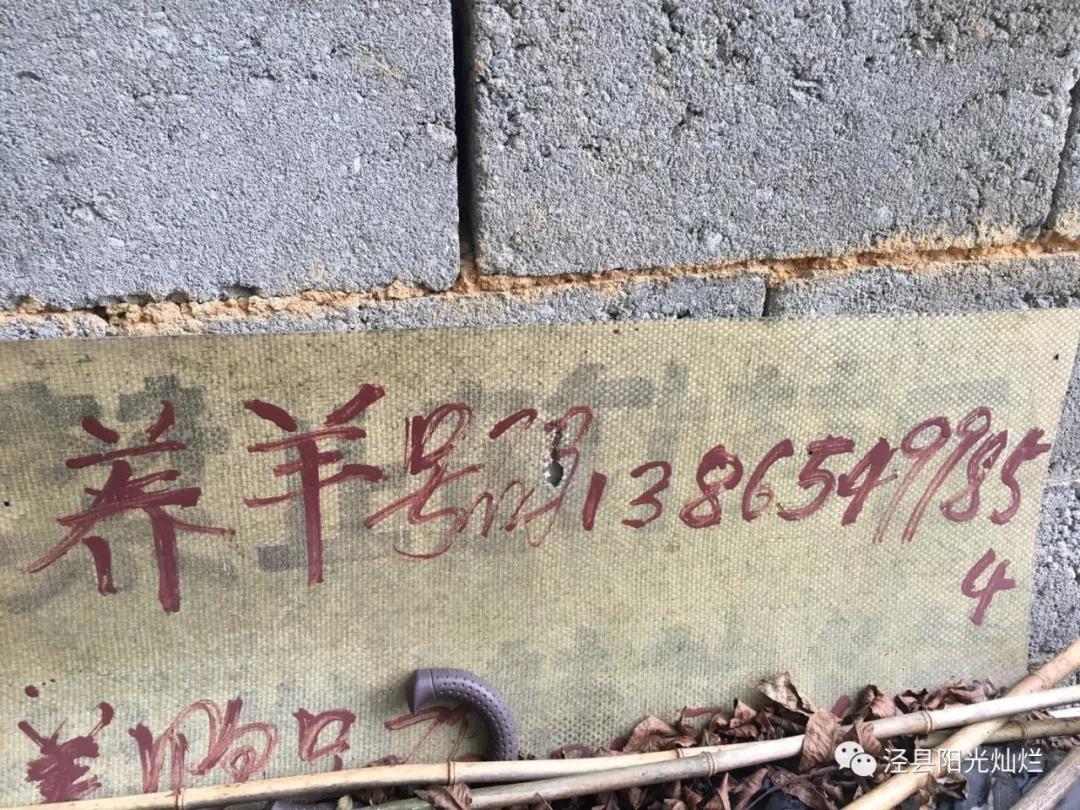 养羊号码1386549985
4
泾县阳光灿烂